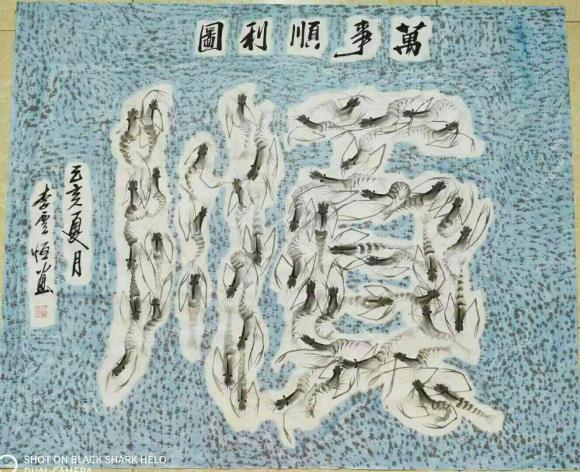 萬事順利圖
順
己亥夏月
李雲恒画
SHOT ON BLACK SHARK HELO
DUAL CAMERA